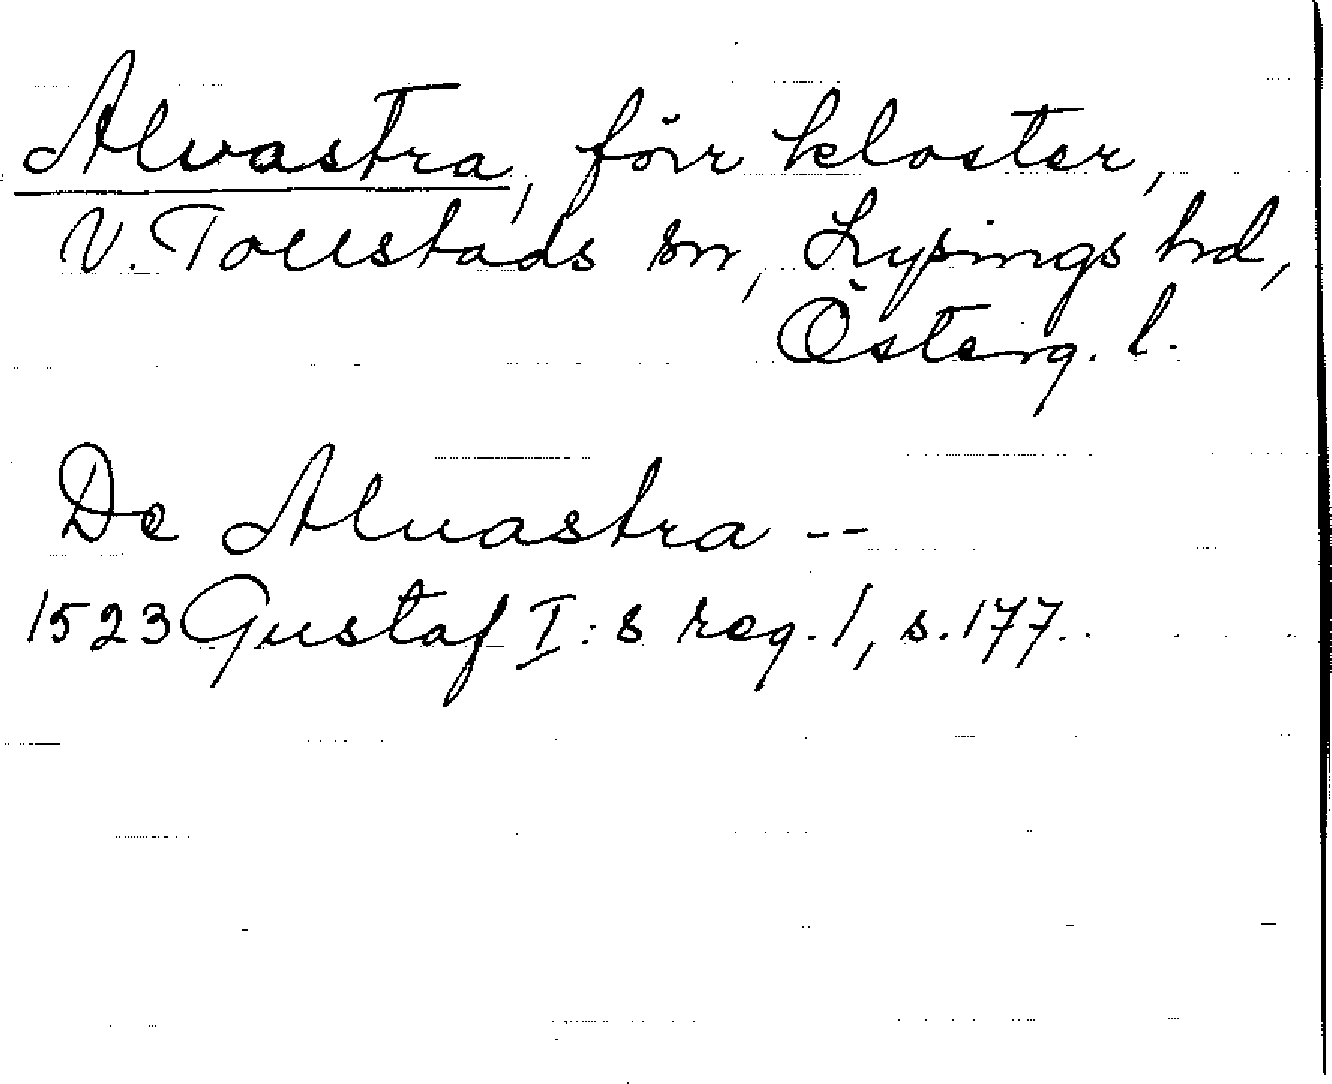 Alvastra, förr kloster,
V. Tollstads sn, Lysings hd,
Österg. l.
De Aluastra --
1523 Gustaf I:s reg. 1, s. 177.